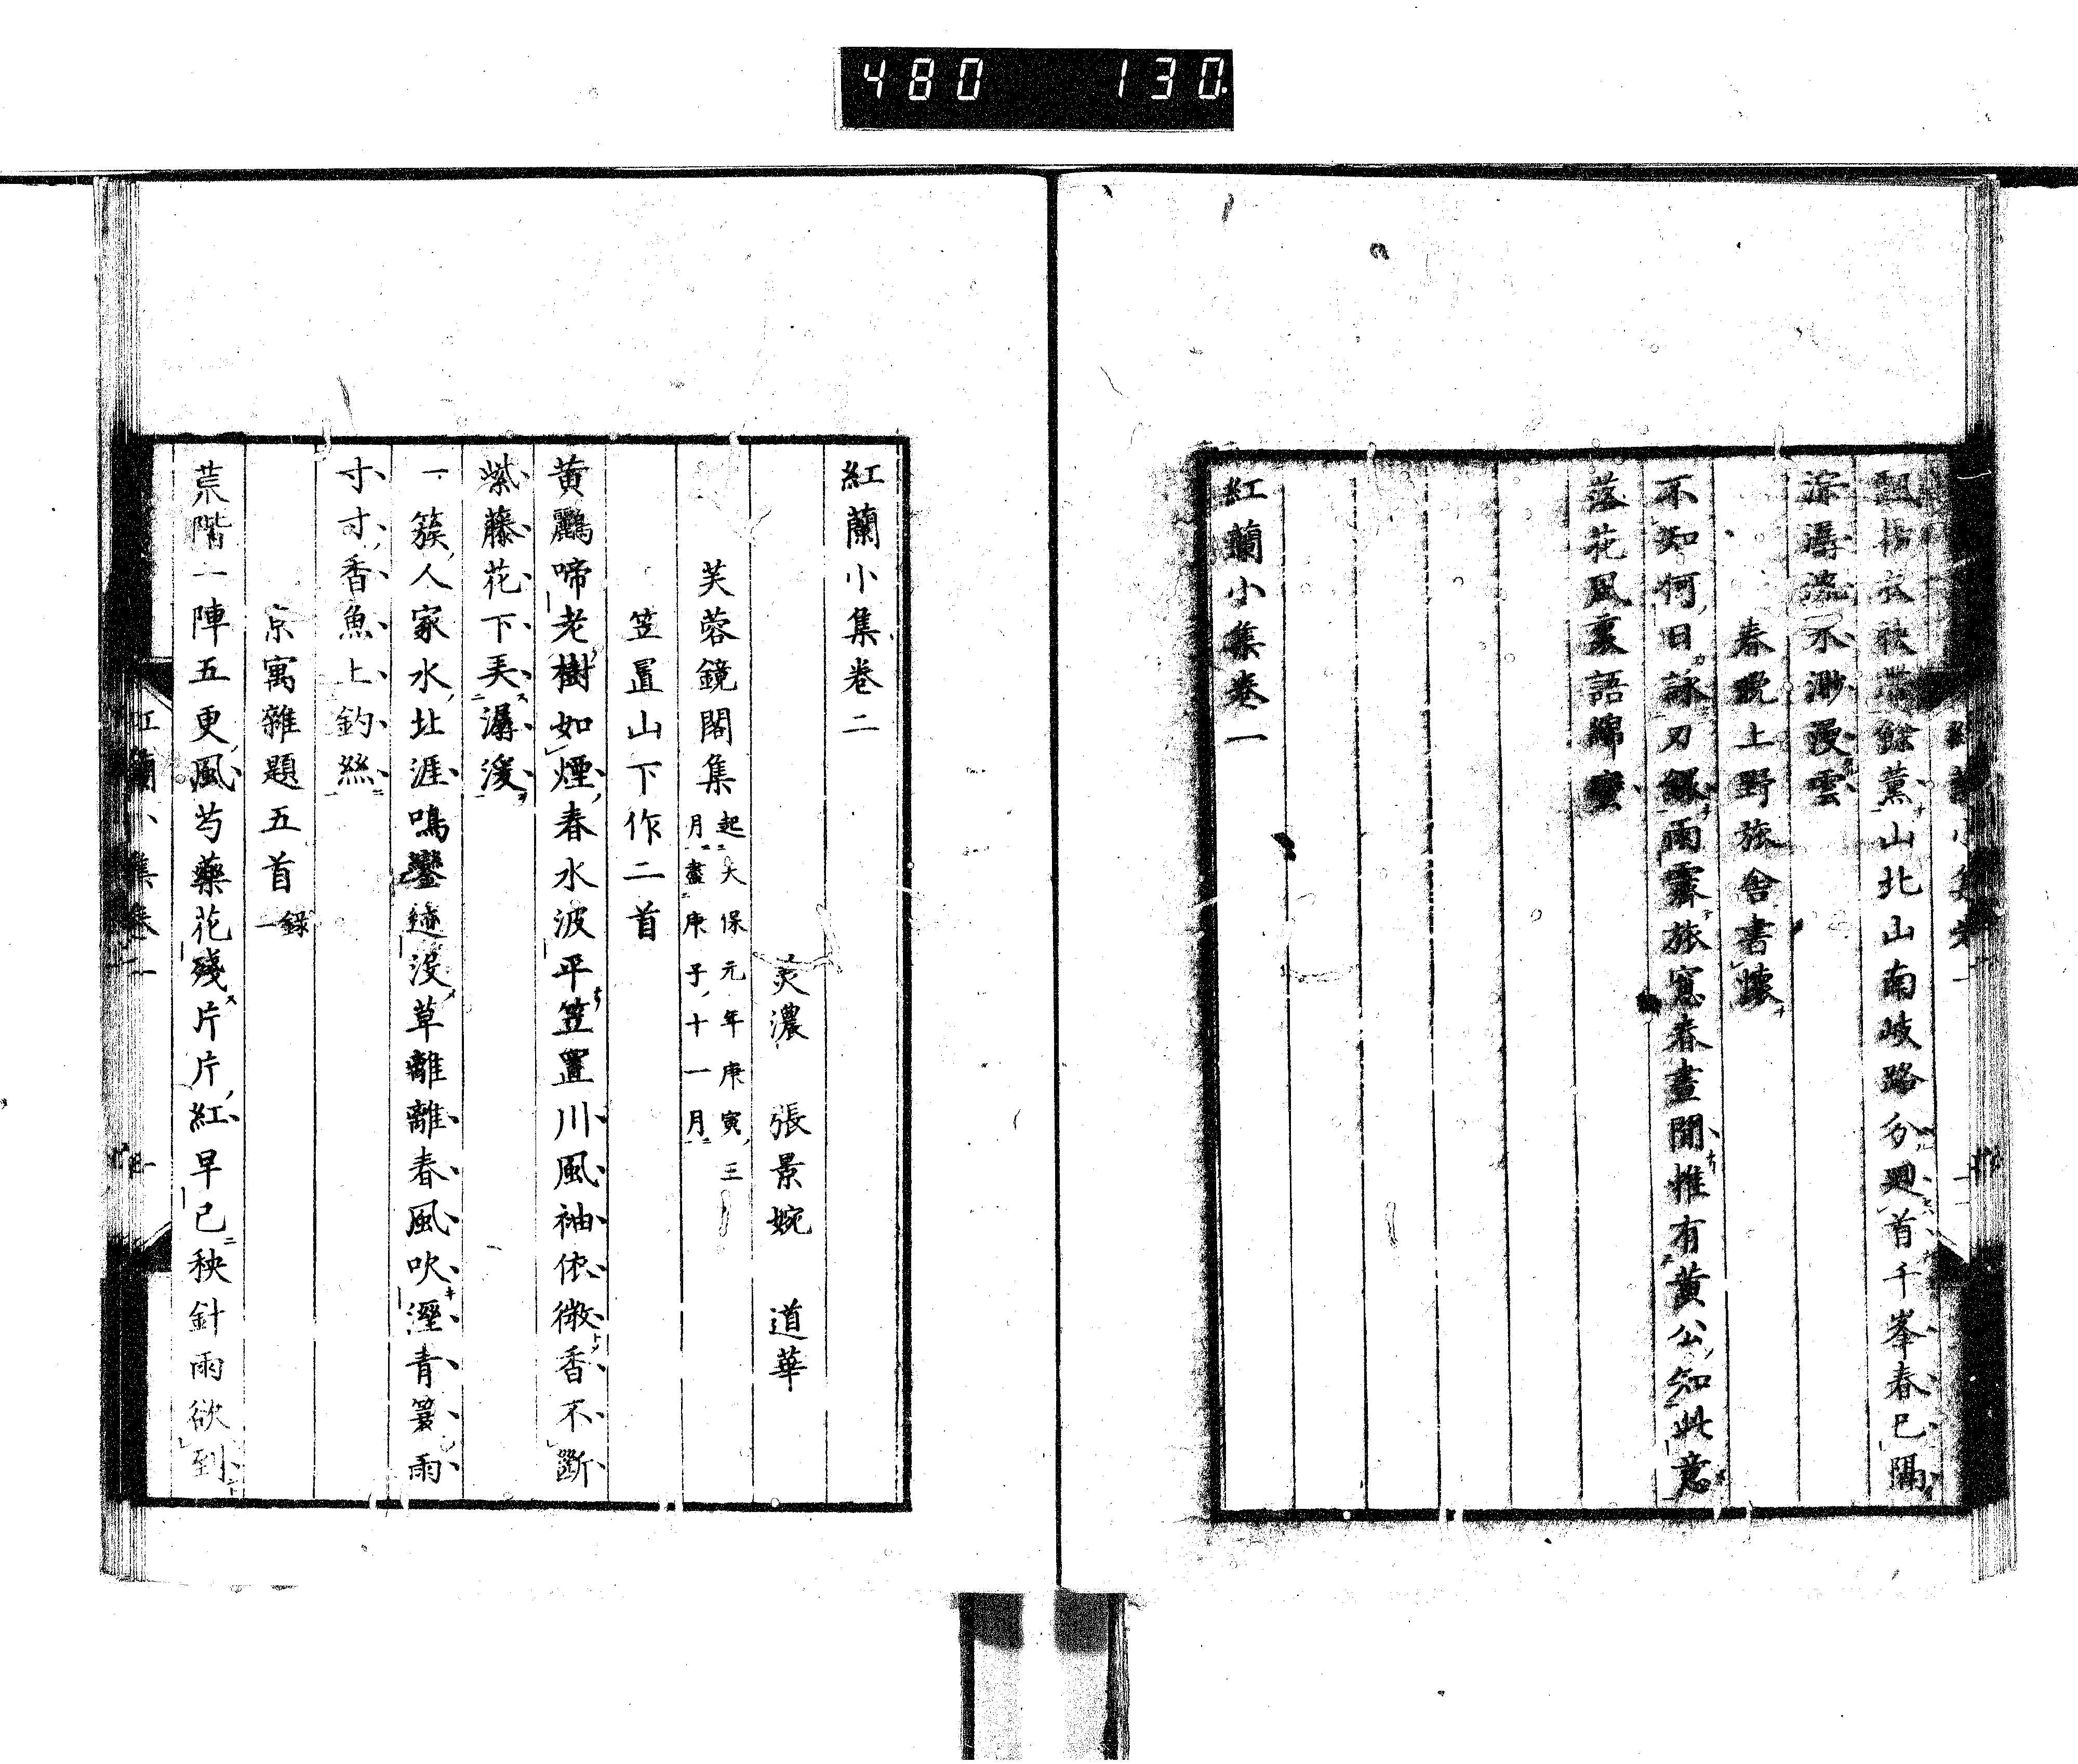 480 130
飄拂衣袂帶餘薰山北山南岐路分廻首千峯春已隔
淙潺流水渺漫雲
春晩上野旅舍書懷
不知何日詠刀鐶雨霽旅窓春晝閒惟有黄公知此意
落花風裏語綿蠻
紅蘭小集卷一
紅蘭小集卷二
美濃 張景婉 道華
芙蓉鏡閣集 起天保元年庚寅三
月盡庚子十一月
笠置山下作二首
黄鸝啼老樹如煙春水波平笠置川風袖依微香不斷
紫藤花下弄潺湲
一簇人家水北涯鳴鑾迹沒草離離春風吹溼青簑雨
寸寸香魚上釣絲
京寓雜題五首 錄一
荒階一陣五更風芍藥花殘片片紅早已秧針雨欲到
紅蘭小集卷二